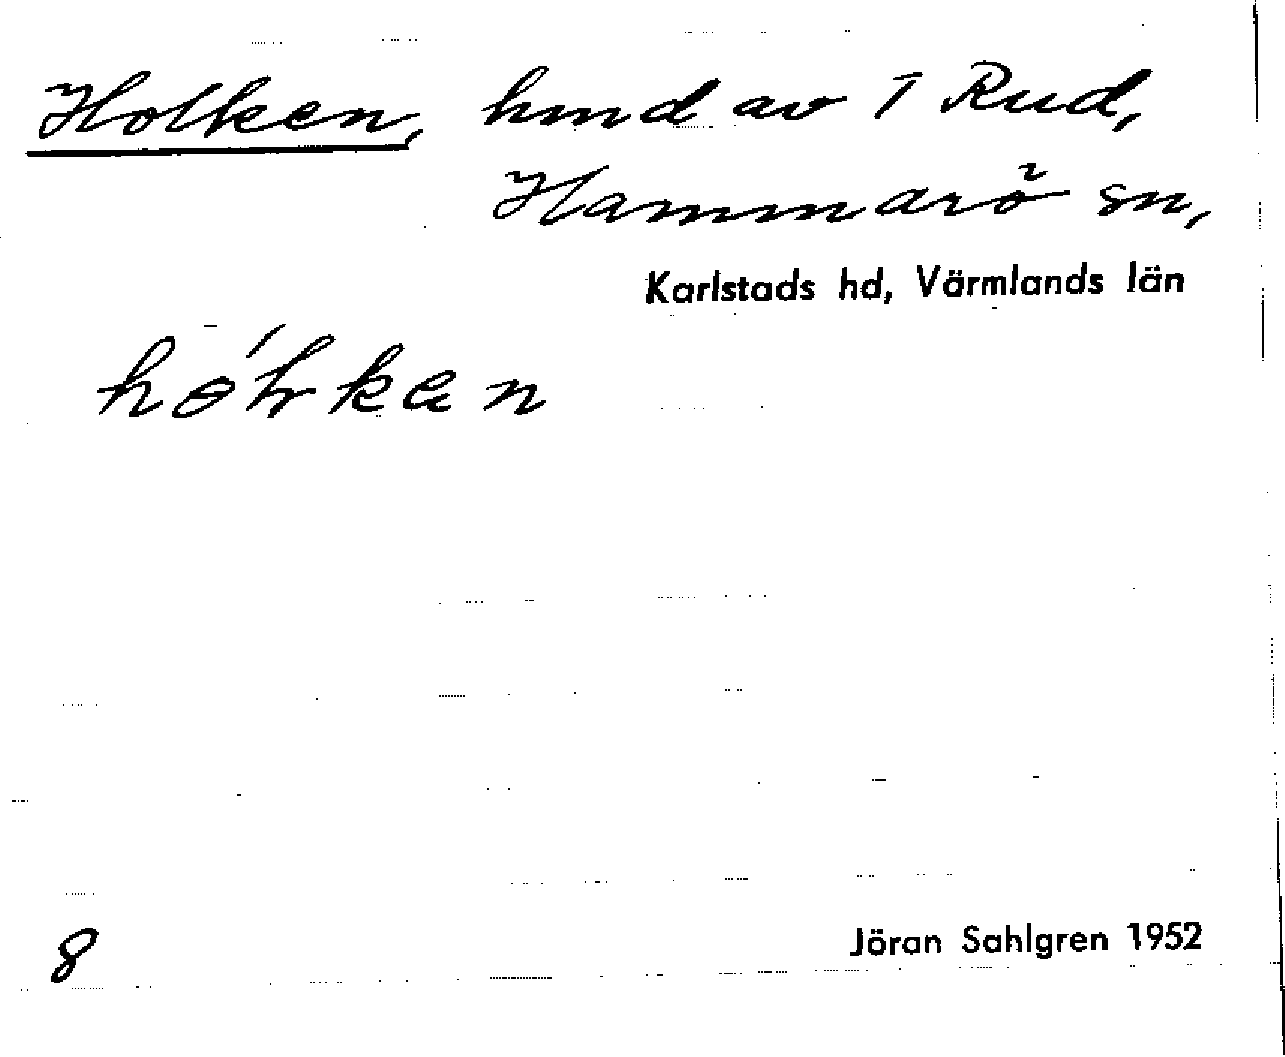 Holken, hmd av 1 Rud,
Hammarö sn,
Karlstads hd, Värmlands län
8
Jöran Sahlgren 1952